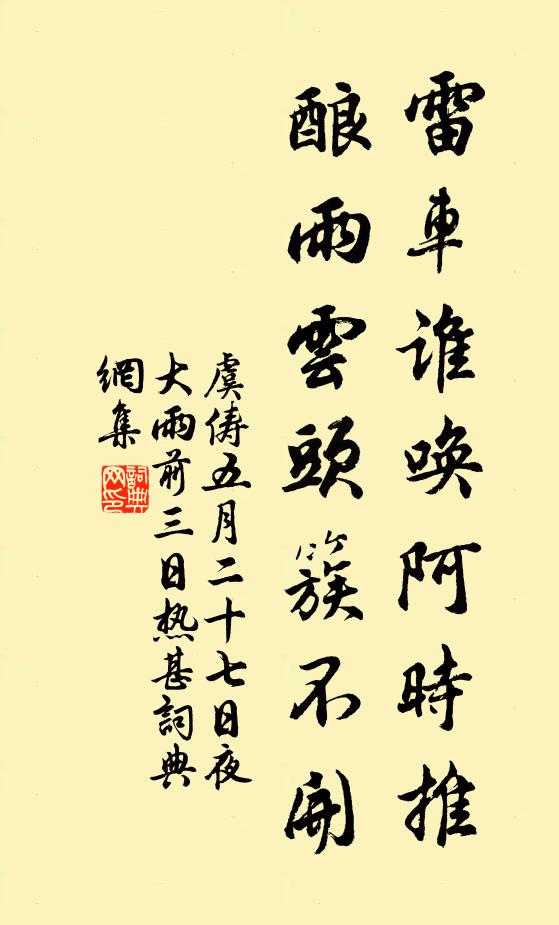 雷車誰唤阿時推
酿雨雲頭簇不開
虞俦五月二十七日夜
大雨前三日热甚詞典
網集
詞典
网印